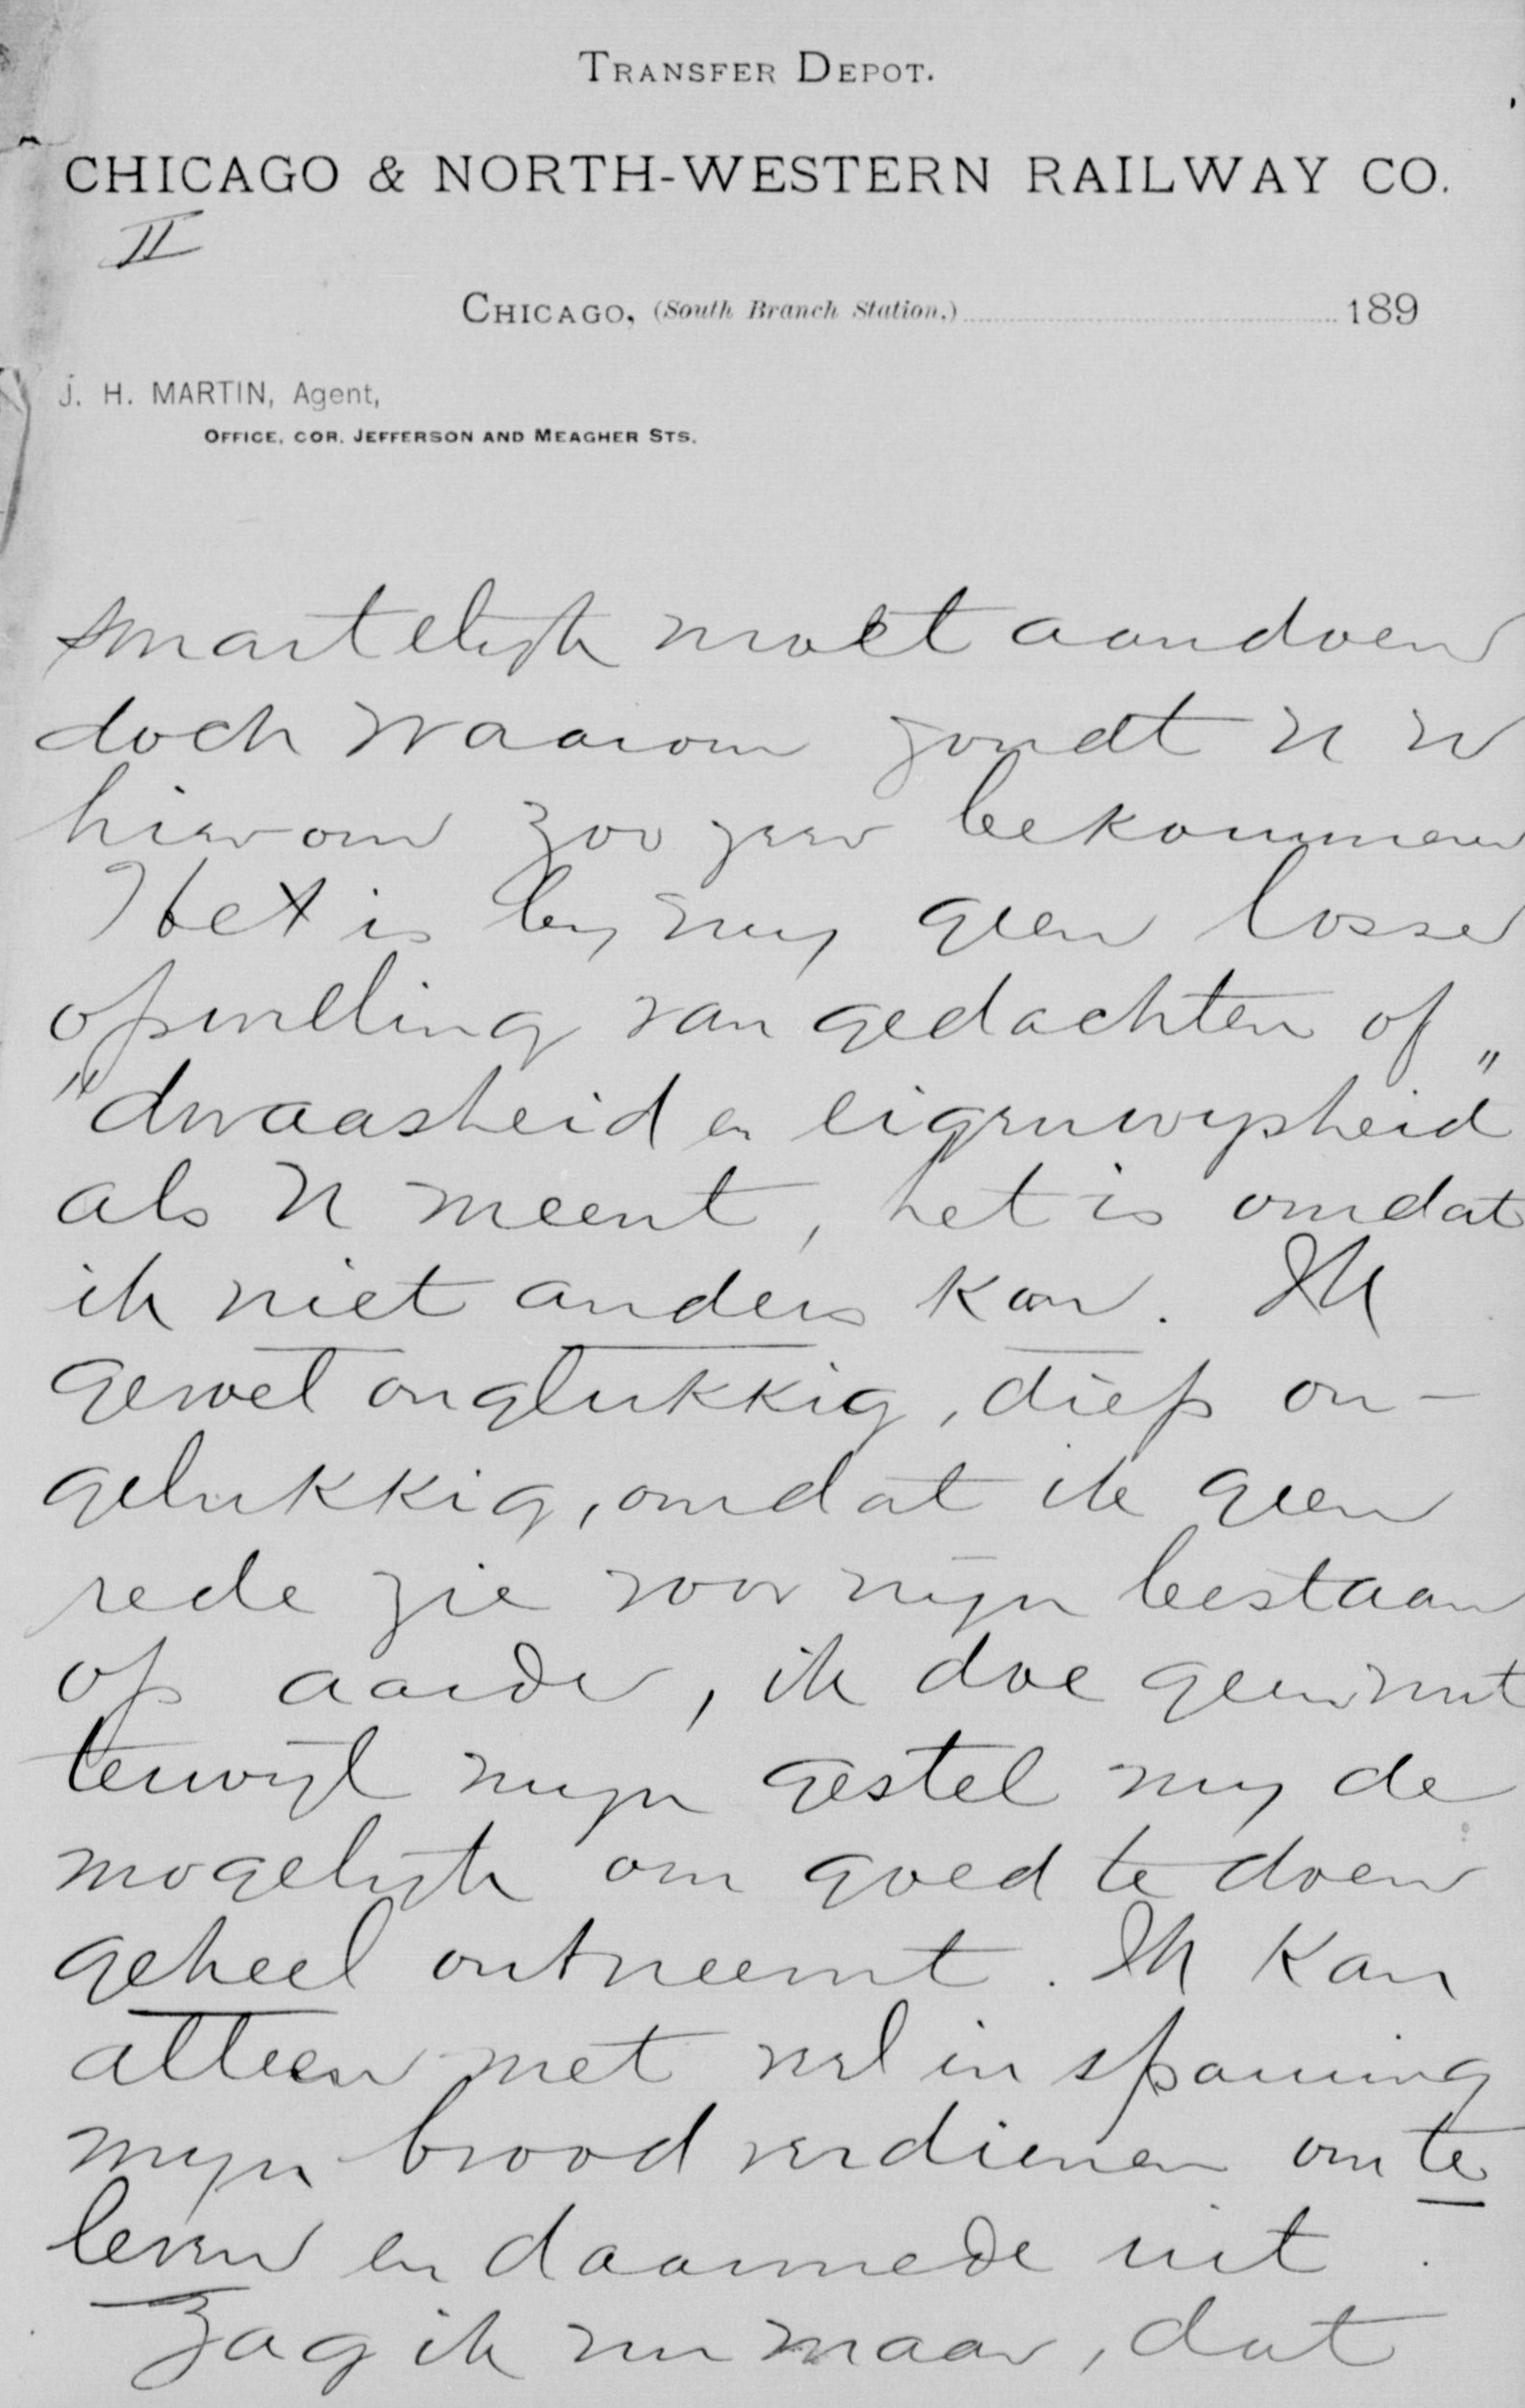 TRANSFER DEPOT.
CHICAGO & NORTH-WESTERN RAILWAY CO.
II
CHICAGO, (South Branch Station.) 189
J. H. MARTIN, Agent,
OFFICE, COR. JEFFERSON AND MEAGHER STS.
smartelijk moet aandoen
doch waarom zoudt U U
hierom zoo zeer bekommeren
Het is by my geen losse
opwelling van gedachten of
"dwaasheid en eigenwysheid"
als U meent, het is omdat
ik niet anders kan. Ik
gevoel ongelukkig, diep on-
gelukkig, omdat ik geen
rede zie voor mijn bestaan
op aarde, ik doe geen nut
terwijl mijn gestel my de
mogelijk om goed te doen
geheel ontneemt. Ik kan
alleen met veel inspanning
mijn brood verdienen om te
leven en daarmede uit.
Zag ik nu maar, dat